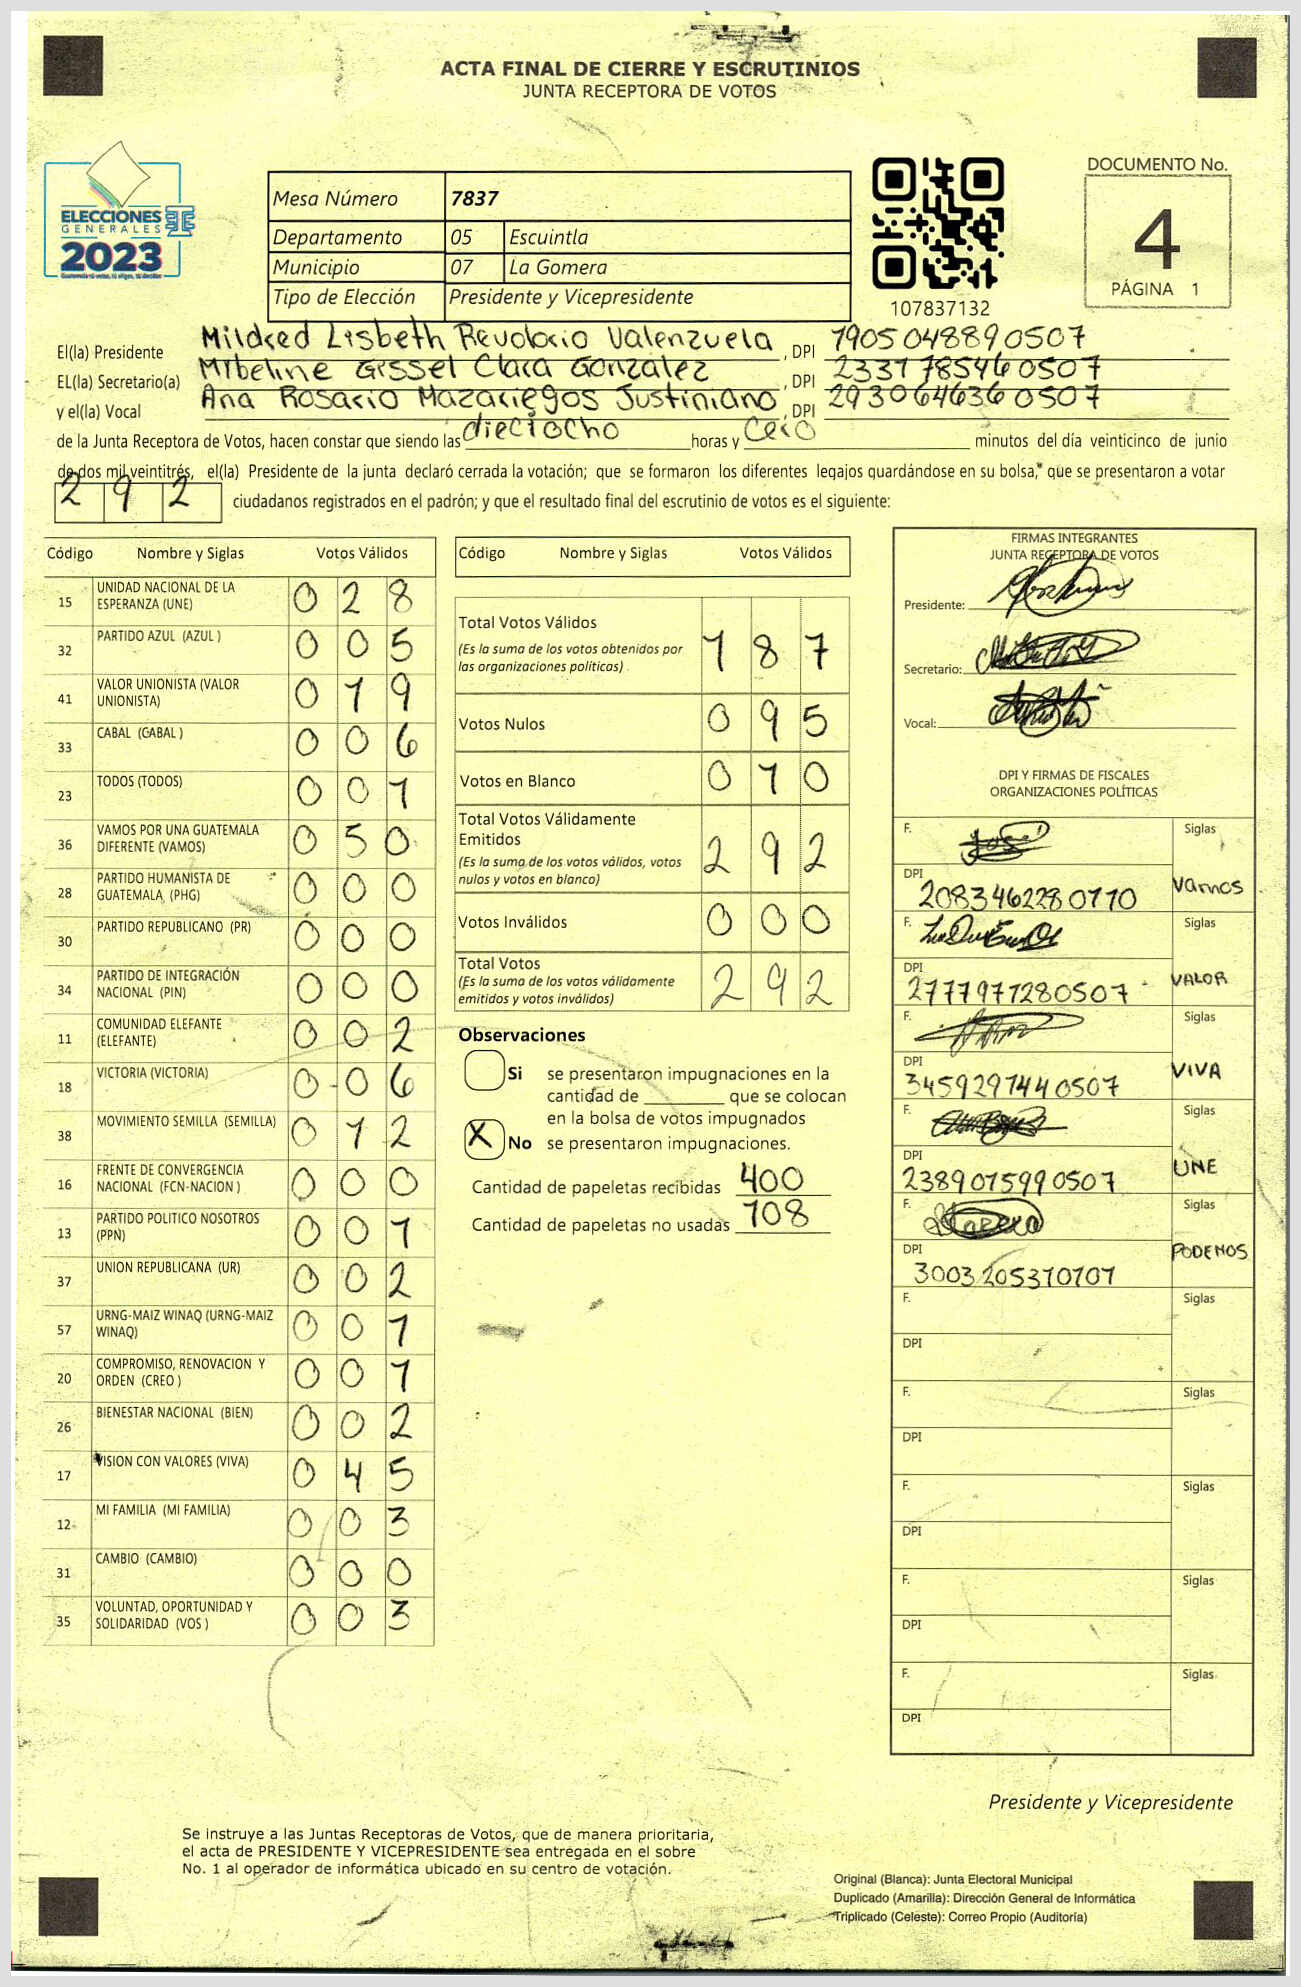 ACTA FINAL DE CIERRE Y ESCRUTINIOS
JUNTA RECEPTORA DE VOTOS
ELECCIONES
GENERALES
2023
Mesa Número 7837
Departamento 05 Escuintla
Municipio 07 La Gomera
Tipo de Elección Presidente y Vicepresidente
107837132
DOCUMENTO No.
4
PÁGINA 1
El(la) Presidente Mildred Lisbeth Revolorio Valenzuela, DPI 1905048890507
EL(la) Secretario(a) Mibeline Gissel Clara Gonzalez, DPI 2331785460507
y el(la) Vocal Ana Rosario Mazariegos Justiniano, DPI 2930646360507
de la Junta Receptora de Votos, hacen constar que siendo las dieciocho horas y cero minutos del día veinticinco de junio
de dos mil veintitrés, el(la) Presidente de la junta declaró cerrada la votación; que se formaron los diferentes legajos guardándose en su bolsa, que se presentaron a votar
292 ciudadanos registrados en el padrón; y que el resultado final del escrutinio de votos es el siguiente:
Código Nombre y Siglas Votos Válidos
15 UNIDAD NACIONAL DE LA ESPERANZA (UNE) 028
32 PARTIDO AZUL (AZUL ) 005
41 VALOR UNIONISTA (VALOR UNIONISTA) 019
33 CABAL (CABAL ) 006
23 TODOS (TODOS) 001
36 VAMOS POR UNA GUATEMALA DIFERENTE (VAMOS) 050
28 PARTIDO HUMANISTA DE GUATEMALA (PHG) 000
30 PARTIDO REPUBLICANO (PR) 000
34 PARTIDO DE INTEGRACIÓN NACIONAL (PIN) 000
11 COMUNIDAD ELEFANTE (ELEFANTE) 002
18 VICTORIA (VICTORIA) 006
38 MOVIMIENTO SEMILLA (SEMILLA) 012
16 FRENTE DE CONVERGENCIA NACIONAL (FCN-NACION ) 000
13 PARTIDO POLITICO NOSOTROS (PPN) 001
37 UNION REPUBLICANA (UR) 002
57 URNG-MAIZ WINAQ (URNG-MAIZ WINAQ) 001
20 COMPROMISO, RENOVACION Y ORDEN (CREO ) 001
26 BIENESTAR NACIONAL (BIEN) 002
17 VISION CON VALORES (VIVA) 045
12 MI FAMILIA (MI FAMILIA) 003
31 CAMBIO (CAMBIO) 000
35 VOLUNTAD, OPORTUNIDAD Y SOLIDARIDAD (VOS ) 003
Código Nombre y Siglas Votos Válidos
Total Votos Válidos 187
(Es la suma de los votos obtenidos por
las organizaciones políticas)
Votos Nulos 095
Votos en Blanco 010
Total Votos Válidamente
Emitidos 292
(Es la suma de los votos válidos, votos
nulos y votos en blanco)
Votos Inválidos 000
Total Votos 292
(Es la suma de los votos válidamente
emitidos y votos inválidos)
Observaciones
Si se presentaron impugnaciones en la
cantidad de ________ que se colocan
en la bolsa de votos impugnados
X No se presentaron impugnaciones.
Cantidad de papeletas recibidas 400
Cantidad de papeletas no usadas 108
FIRMAS INTEGRANTES
JUNTA RECEPTORA DE VOTOS
Presidente:
Secretario:
Vocal:
DPI Y FIRMAS DE FISCALES
ORGANIZACIONES POLÍTICAS
F. Siglas
DPI 2083462280710 Vamos
F. Siglas
DPI 2777977280507 VALOR
F. Siglas
DPI 3459297440507 VIVA
F. Siglas
DPI 2389075990507 UNE
F. Siglas
DPI 3003205310101 PODEMOS
F. Siglas
DPI
F. Siglas
DPI
F. Siglas
DPI
F. Siglas
DPI
F. Siglas
DPI
Presidente y Vicepresidente
Se instruye a las Juntas Receptoras de Votos, que de manera prioritaria,
el acta de PRESIDENTE Y VICEPRESIDENTE sea entregada en el sobre
No. 1 al operador de informática ubicado en su centro de votación.
Original (Blanca): Junta Electoral Municipal
Duplicado (Amarilla): Dirección General de Informática
Triplicado (Celeste): Correo Propio (Auditoría)